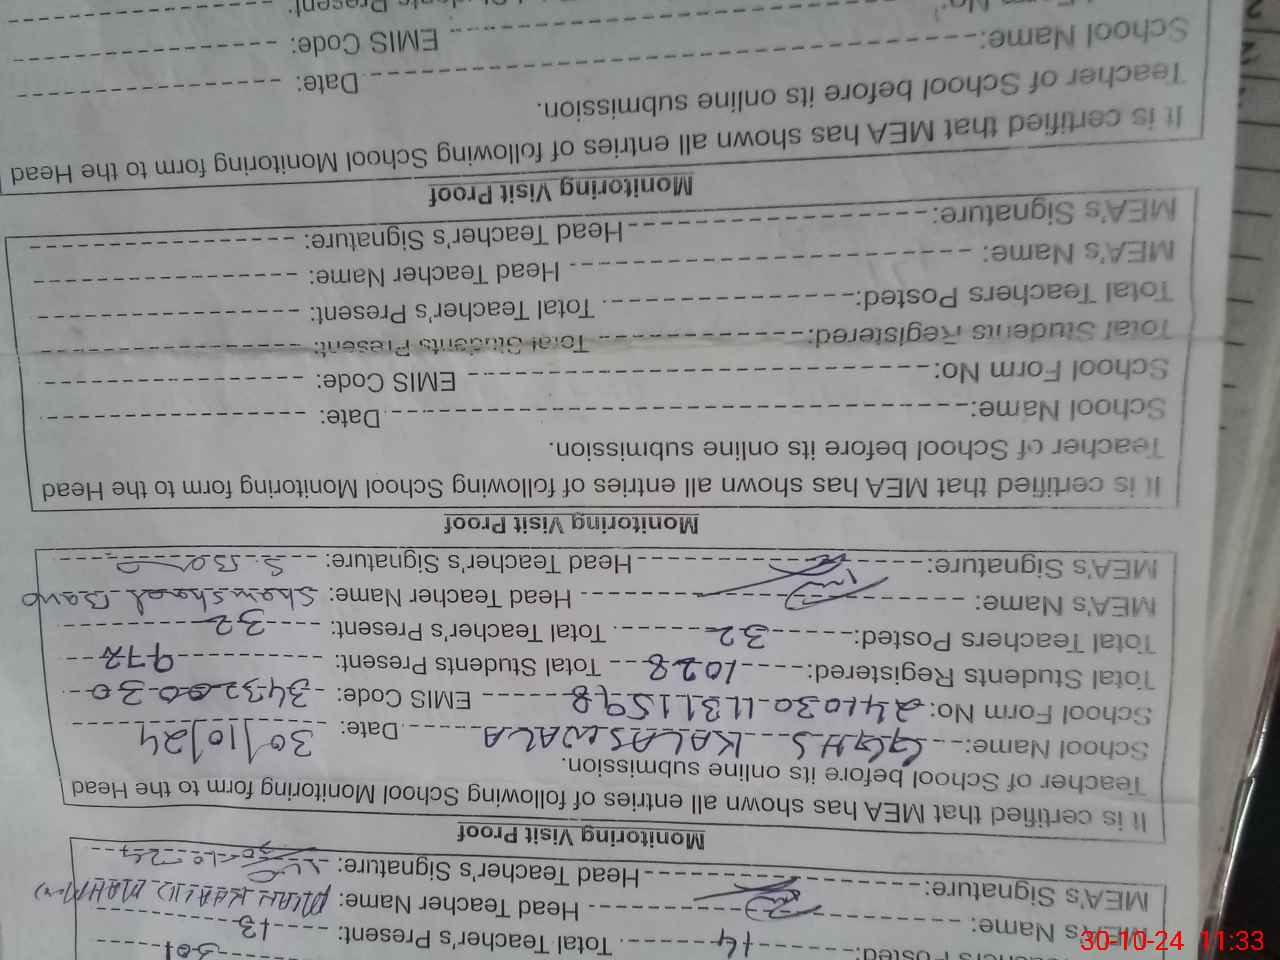 Total Teacher's Present:
MEA's Name: Head Teacher Name:
MEA's Signature: Head Teacher's Signature:
Monitoring Visit Proof
It is certified that MEA has shown all entries of following School Monitoring form to the Head
Teacher of School before its online submission.
School Name: GGHS KALASWALA Date: 30/10/24
School Form No: EMIS Code:
Total Students Registered: 1028 Total Students Present:
Total Teachers Posted: 32 Total Teacher's Present: 32
MEA's Name: Head Teacher Name: Bano
MEA's Signature: Head Teacher's Signature:
Monitoring Visit Proof
It is certified that MEA has shown all entries of following School Monitoring form to the Head
Teacher of School before its online submission.
School Name: Date:
School Form No: EMIS Code:
Total Students Registered: Total Students Present:
Total Teachers Posted: Total Teacher's Present:
MEA's Name: Head Teacher Name:
MEA's Signature: Head Teacher's Signature:
Monitoring Visit Proof
It is certified that MEA has shown all entries of following School Monitoring form to the Head
Teacher of School before its online submission.
School Name: Date:
EMIS Code:
30-10-24 11:33